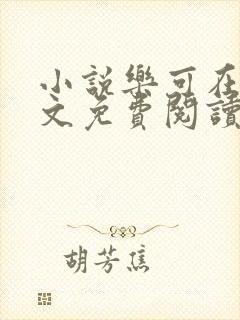 小說樂可在
文免費閱讀
胡芳焦